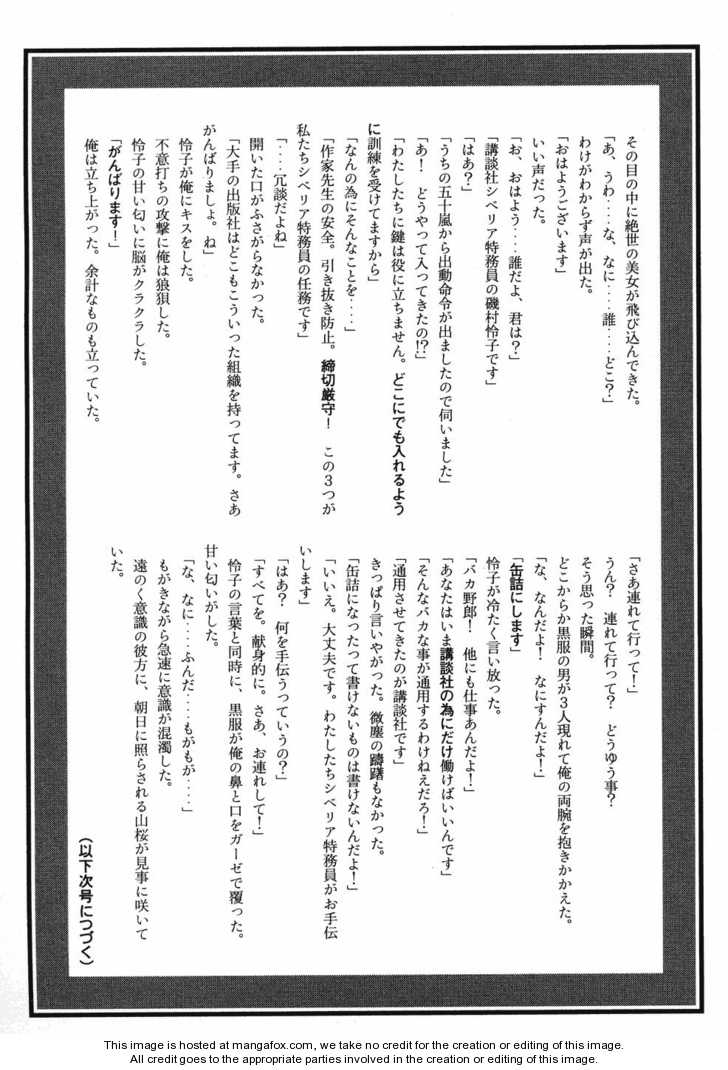 その目の中に絶世の美女が飛び込んできた。
「あ、うわ‥‥な、なに‥‥誰‥‥どこ？」
わけがわからず声が出た。
「おはようございます」
いい声だった。
「お、おはよう‥‥誰だよ、君は？」
「講談社シベリア特務員の磯村怜子です」
「はあ？」
「うちの五十嵐から出動命令が出ましたので伺いました」
「あ！　どうやって入ってきたの!?」
「わたしたちに鍵は役に立ちません。どこにでも入れるよう
に訓練を受けてますから」
「なんの為にそんなことを‥‥」
「作家先生の安全。引き抜き防止。締切厳守！　この３つが
私たちシベリア特務員の任務です」
「‥‥冗談だよね」
開いた口がふさがらなかった。
「大手の出版社はどこもこういった組織を持ってます。さあ
がんばりましょ。ね」
怜子が俺にキスをした。
不意打ちの攻撃に俺は狼狽した。
怜子の甘い匂いに脳がクラクラした。
「がんばります！」
俺は立ち上がった。余計なものも立っていた。
「さあ連れて行って！」
うん？　連れて行って？　どうゆう事？
そう思った瞬間。
どこからか黒服の男が３人現れて俺の両腕を抱きかかえた。
「な、なんだよ！　なにすんだよ！」
「缶詰にします」
怜子が冷たく言い放った。
「バカ野郎！　他にも仕事あんだよ！」
「あなたはいま講談社の為にだけ働けばいいんです」
「そんなバカな事が通用するわけねえだろ！」
「通用させてきたのが講談社です」
きっぱり言いやがった。微塵の躊躇もなかった。
「缶詰になったって書けないものは書けないんだよ！」
「いいえ。大丈夫です。わたしたちシベリア特務員がお手伝
いします」
「はあ？　何を手伝うっていうの？」
「すべてを。献身的に。さあ、お連れして！」
怜子の言葉と同時に、黒服が俺の鼻と口をガーゼで覆った。
甘い匂いがした。
「な、なに‥‥ふんだ‥‥もがもが‥‥」
もがきながら急速に意識が混濁した。
遠のく意識の彼方に、朝日に照らされる山桜が見事に咲いて
いた。
（以下次号につづく）
This image is hosted at mangafox.com, we take no credit for the creation or editing of this image.
All credit goes to the appropriate parties involved in the creation or editing of this image.